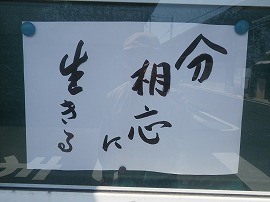 分
相応に
生きる